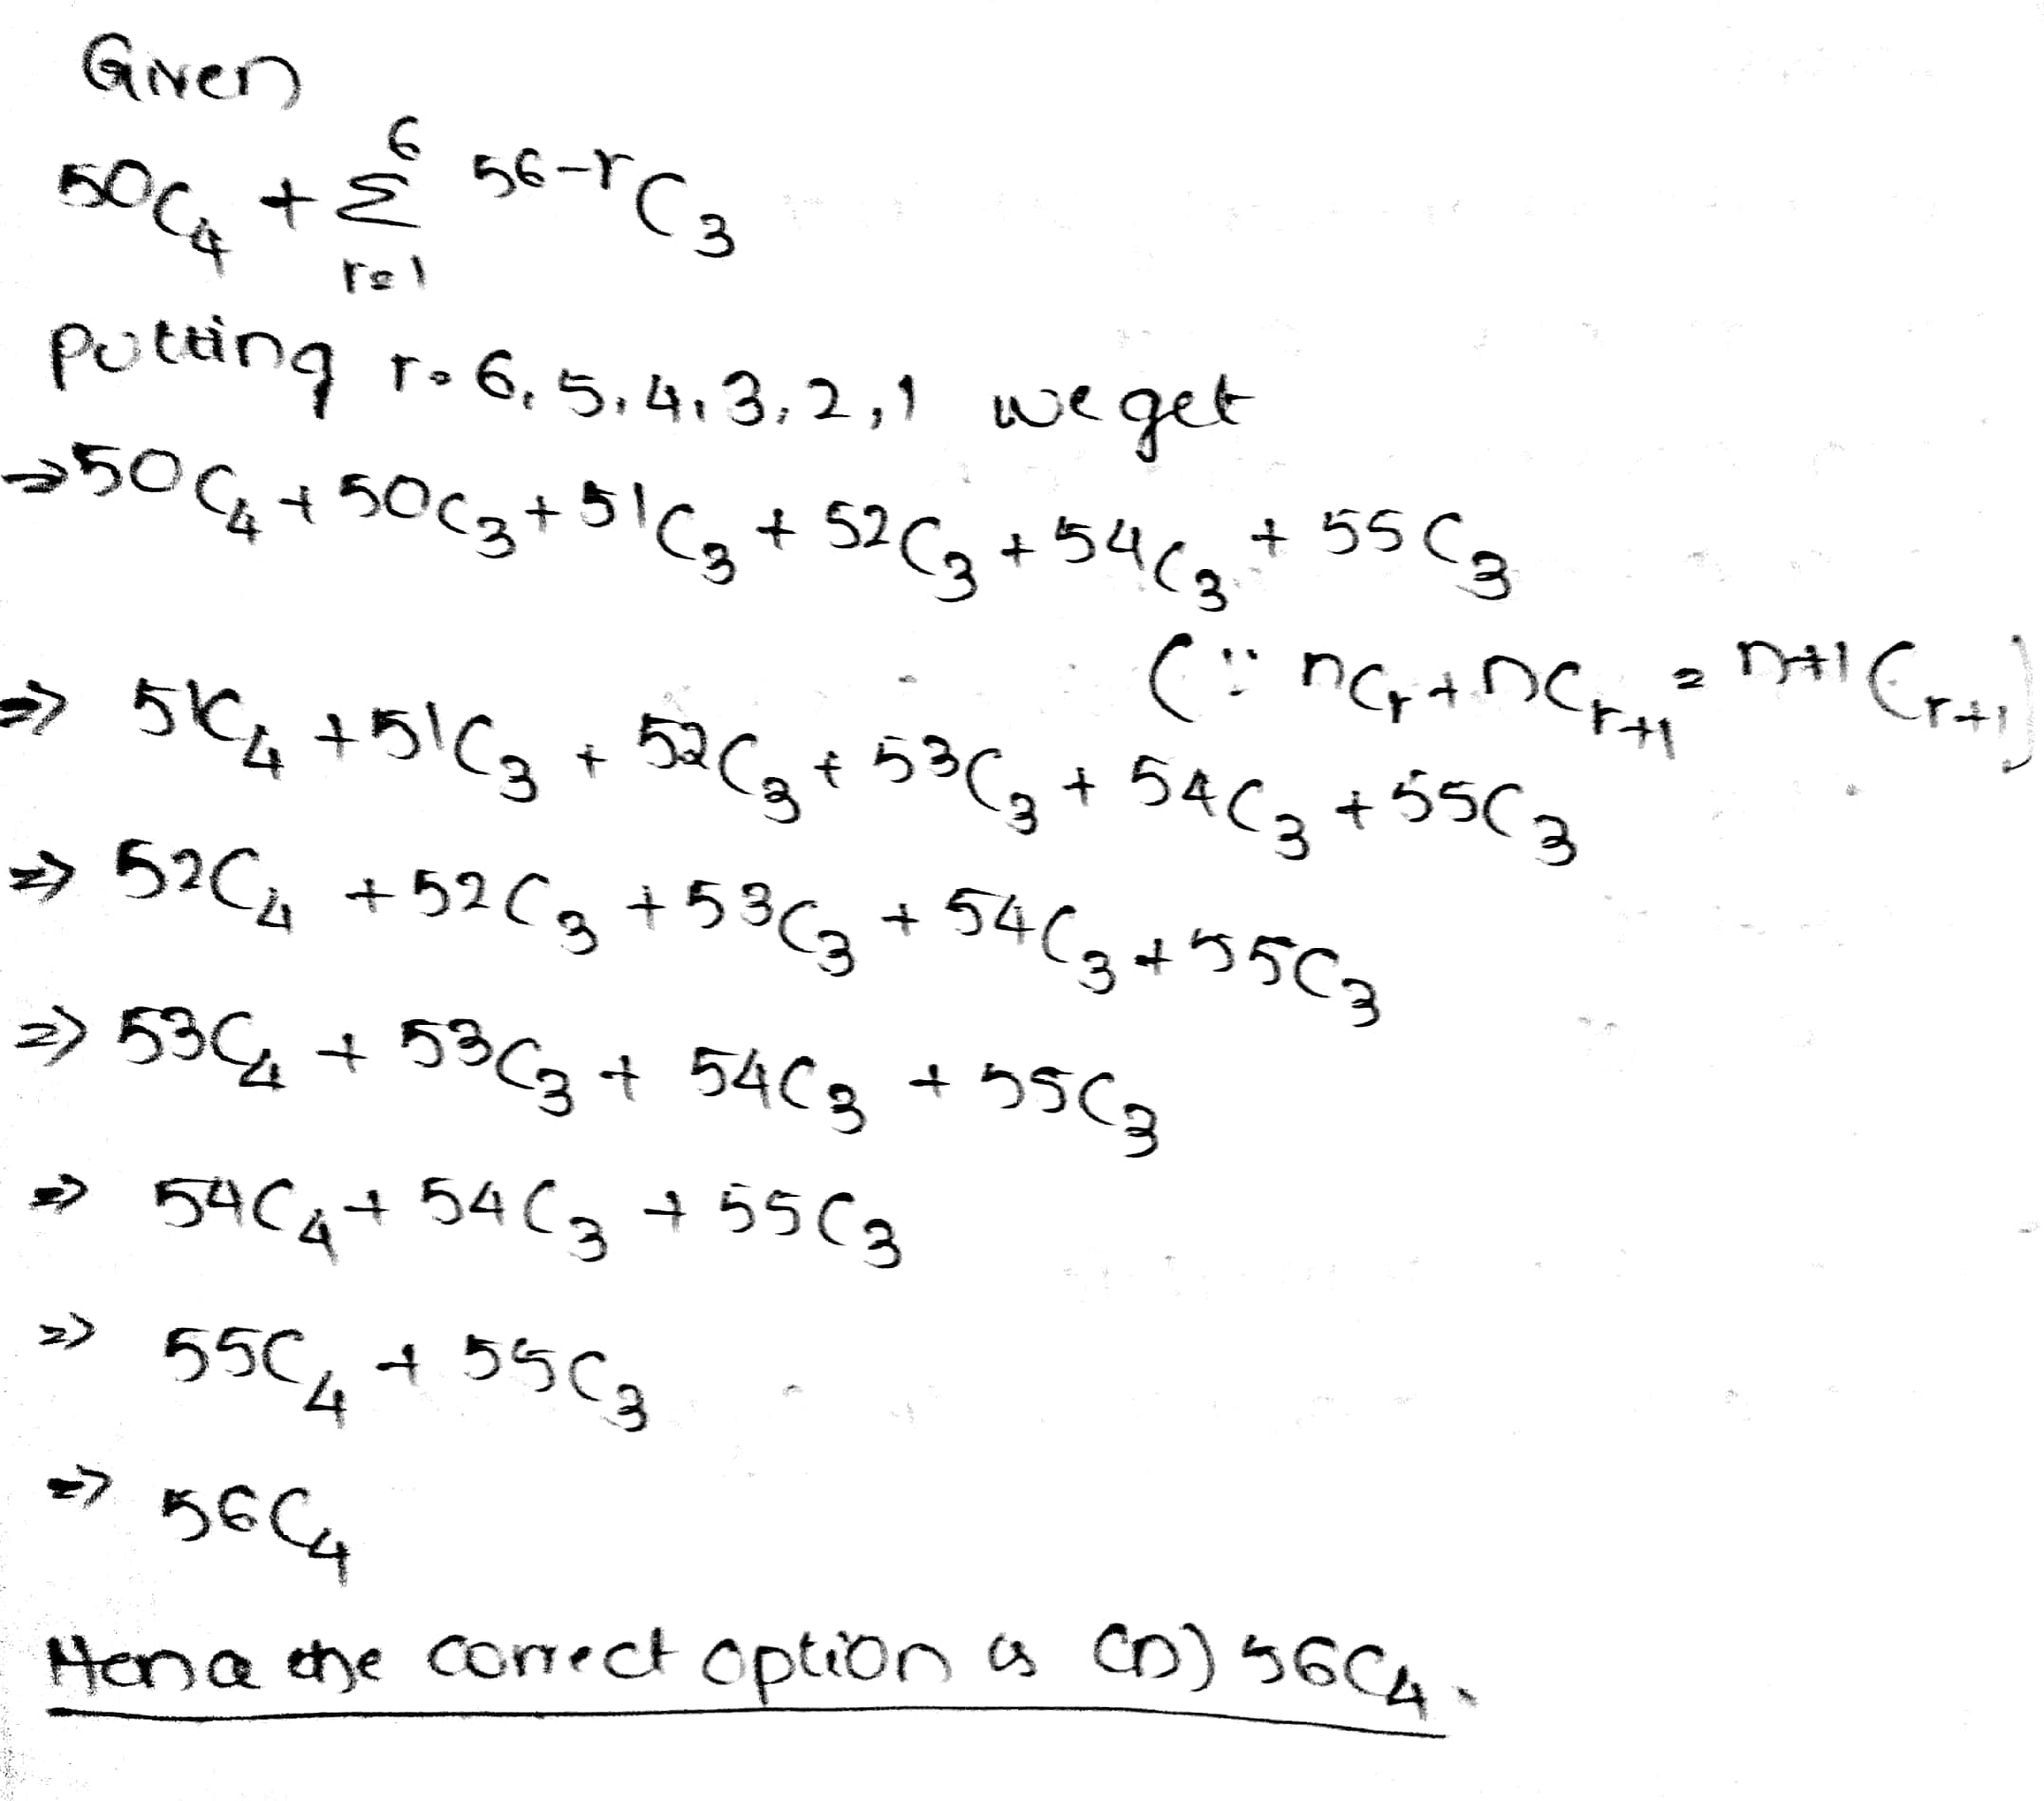 Given
50C₄ + Σ⁶ᵣ₌₁ 56-rC₃
putting r=6,5,4,3,2,1 we get
⇒50C₄+50C₃+51C₃+52C₃+54C₃+55C₃
(∵ nCᵣ+nCᵣ₊₁=n+1Cᵣ₊₁)
⇒ 51C₄+51C₃+52C₃+53C₃+54C₃+55C₃
⇒ 52C₄+52C₃+53C₃+54C₃+55C₃
⇒ 53C₄+53C₃+54C₃+55C₃
⇒ 54C₄+54C₃+55C₃
⇒ 55C₄+55C₃
⇒ 56C₄
Hence the correct option is (D) 56C₄.